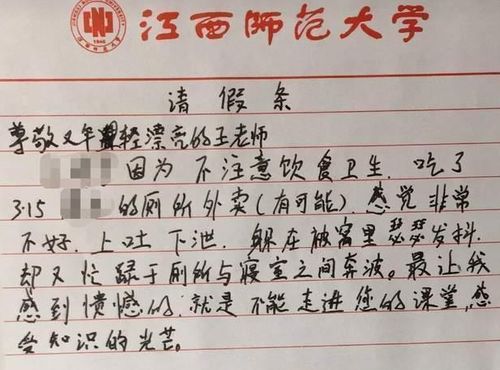 江西师范大学
请假条
尊敬又年轻漂亮的王老师
因为不注意饮食卫生.吃了
3.15的厕所外卖(有可能).感觉非常
不好.上吐下泄.躲在被窝里瑟瑟发抖.
却又忙碌于厕所与寝室之间奔波。最让我
感到愤憾的.就是不能走进您的课堂,感
受知识的光芒。